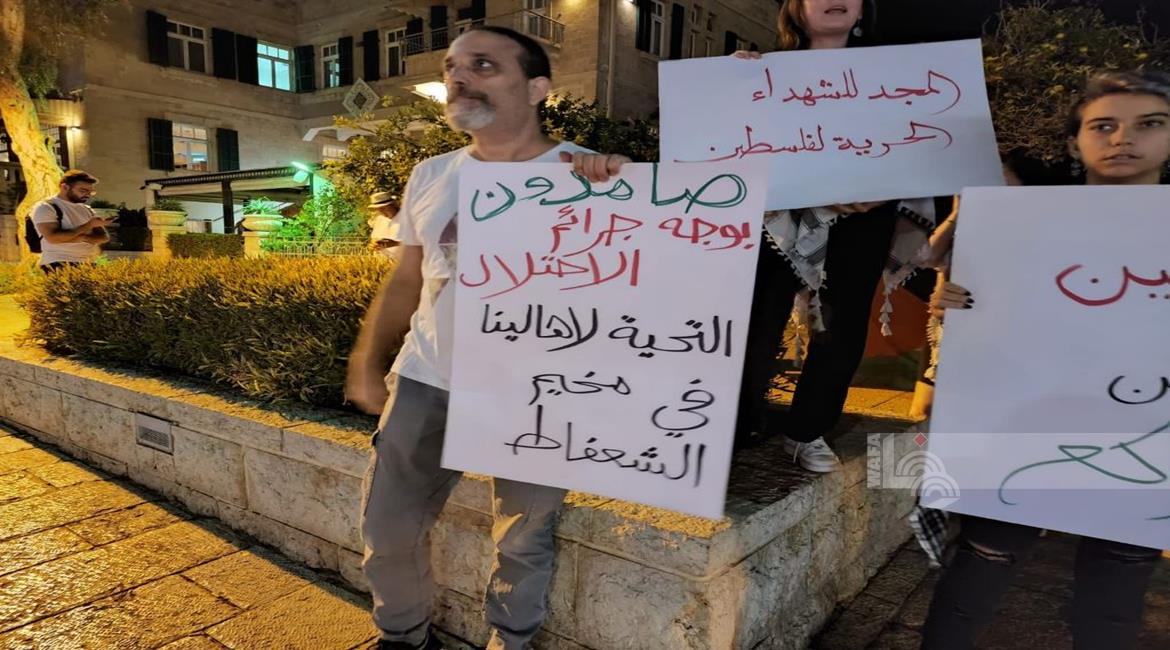 المجد للشهداء
الحرية لفلسطين
صامدون
بوجه جرائم
الاحتلال
التحية لاهالينا
في مخيم
الشعفاط
WAFA